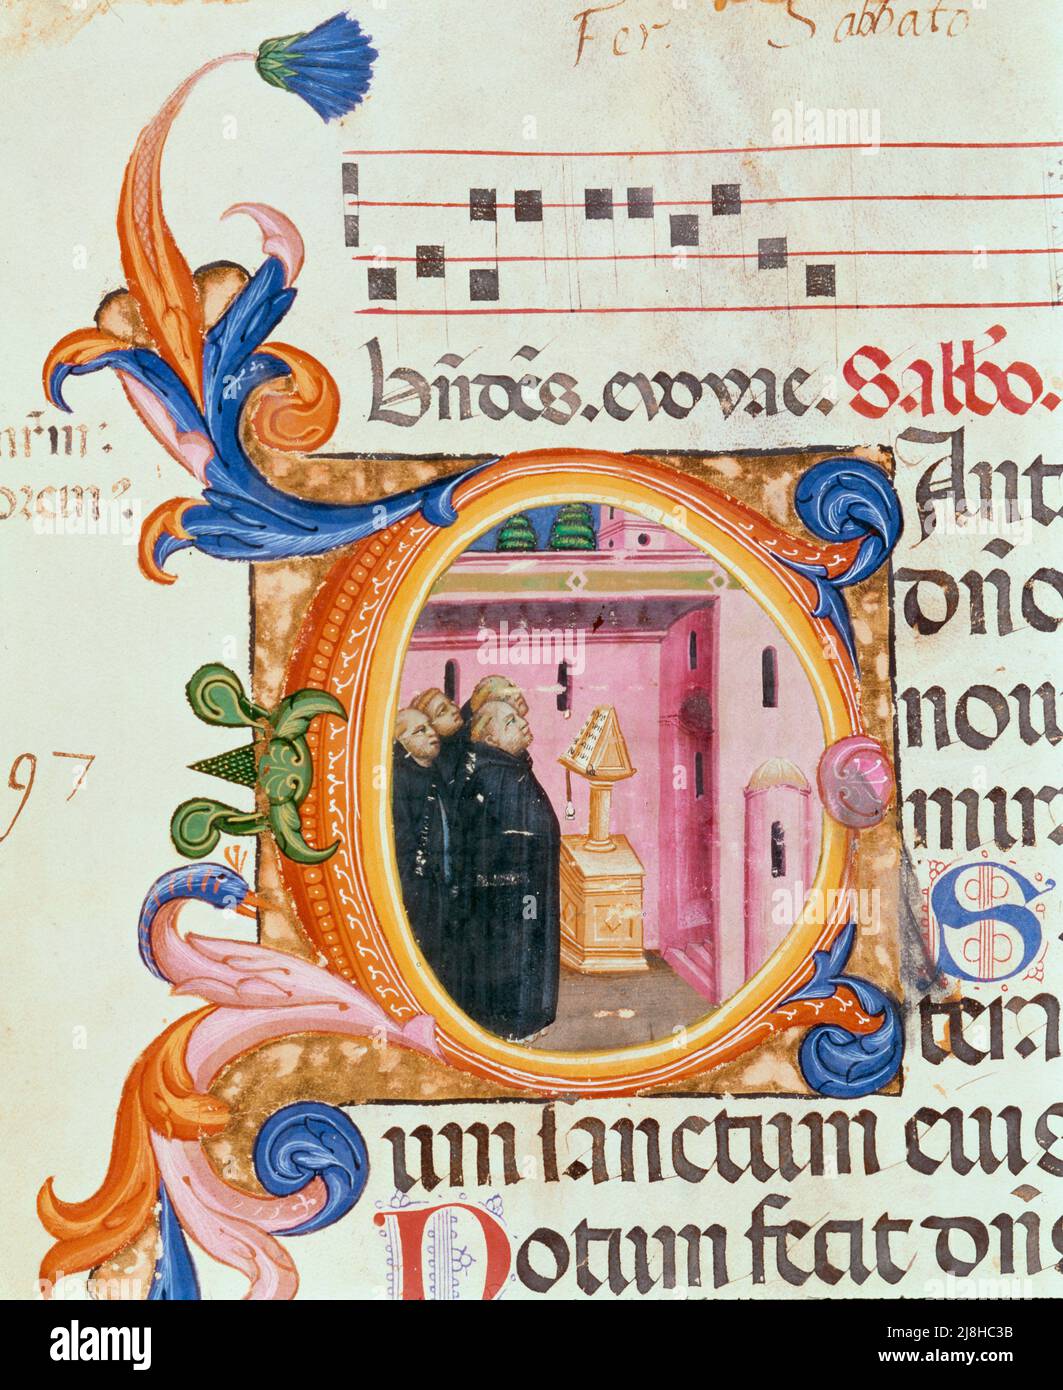 Fer. Sabbato
evovae. Sabbo.
Ant
dño
nou
mira
S
tera
um sanctum eius
Notum fecit dñs
97
alamy
Image ID: 2J8HC3B
www.alamy.com